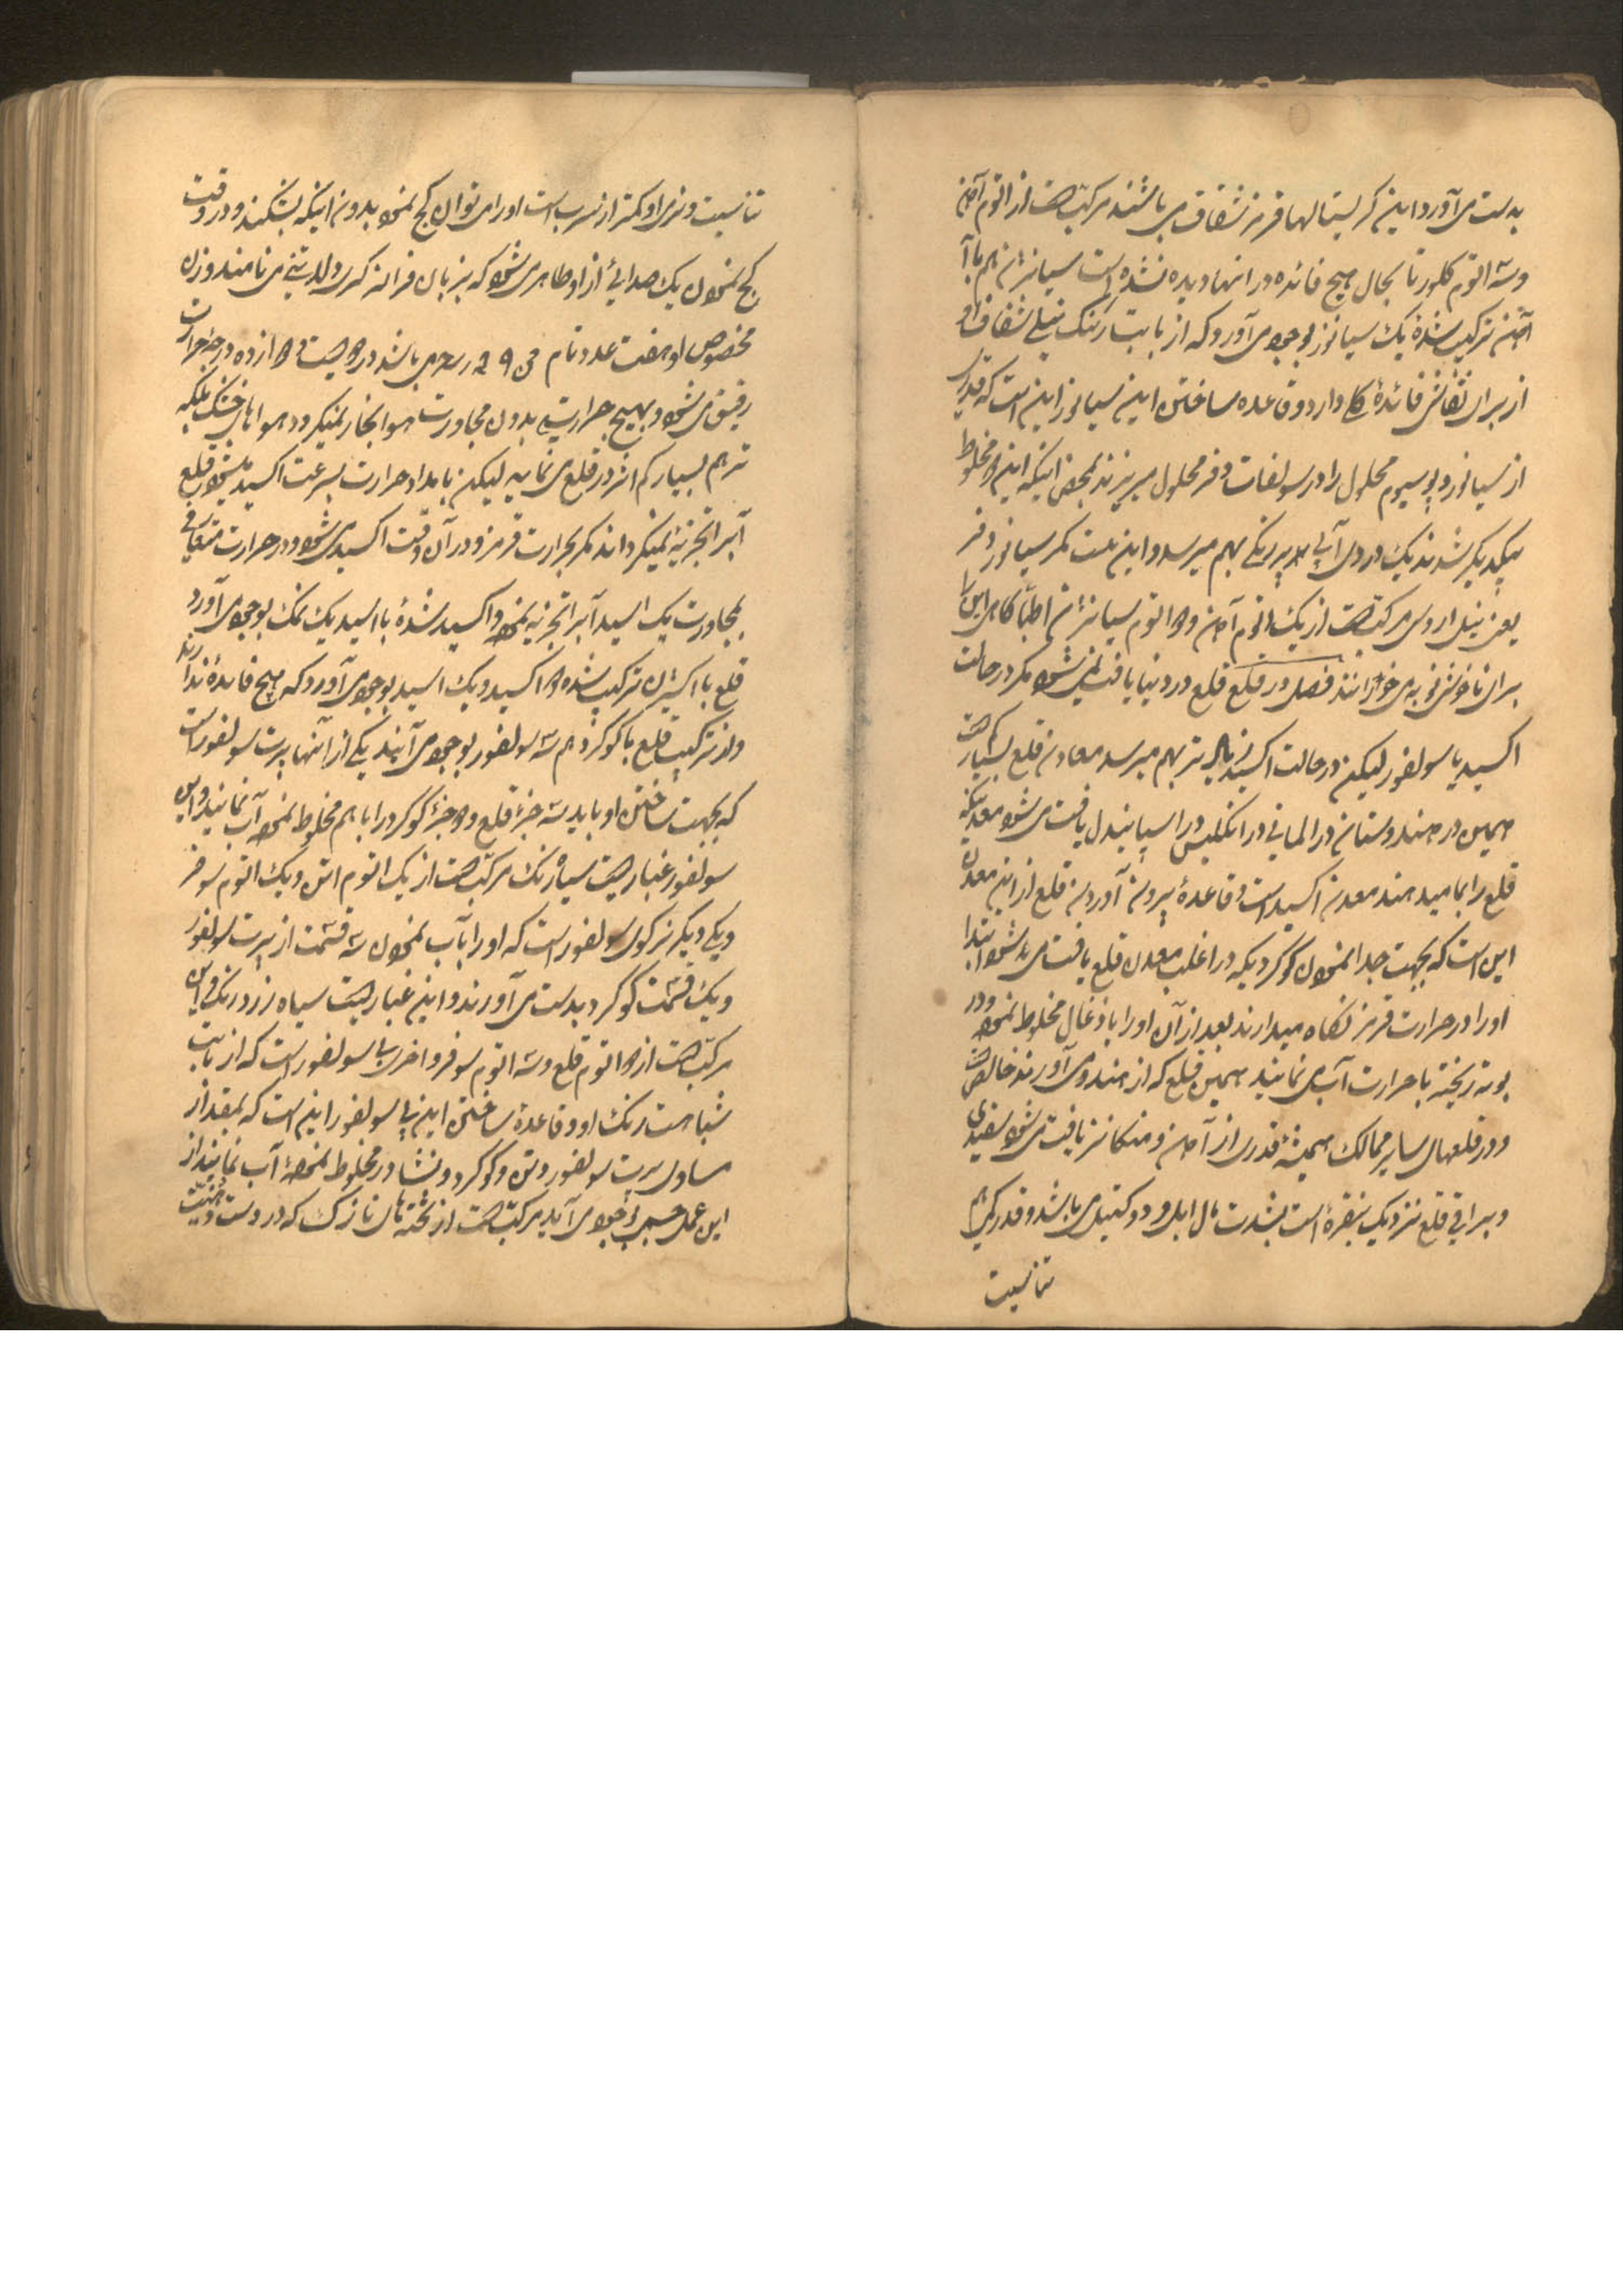 بدست می‌آورد این کریستالها قرمز شفاف می باشند مرکب است از اتوم آهن
و سه اتوم کلور تا بحال هیچ فائده در انها دیده نشده است سیانژن هم با
آهن ترکیب شده یک سیانور بوجود می آورد که از بابت رنگ نیلی شفاف او
از برای نقاش فائده کلی دارد و قاعده ساختن این سیانور این است که قدری
از سیانور پوتسیوم محلول را در سولفات دفر محلول میریزند بمحض اینکه این دو مخلوط
یکدیگر شدند یک دردی آبی پررنگی بهم میرسد و این نیست مگر سیانور دفر
یعنی نیل اروسی مرکب است از یک اتوم آهن و دو اتوم سیانژن اطبا گاهی این را
برای ناخوشی نوبه می خورانند فصل در قلع قلع در دنیا یافت نمی شود مگر در حالت
اکسید یا سولفور لیکن در حالت اکسید زیادتر بهم میرسد معادن قلع بسیار است
همین در هندوستان در المانی در انگلیس در اسپانیول یافت می شود معدنیکه
قلع را نمایند معدن اکسید است و قاعده بیرون آوردن قلع از این معدن
این است که بجهت جدا نمودن گوگردیکه در اغلب معدن قلع یافت می شود ابتدا
او را در حرارت قرمز نگاه میدارند بعد از آن او را با ذغال مخلوط نموده و در
بوته ریخته با حرارت آب می نمایند همین قلع که از هند می آورند خالص است
و در قلعهای سایر ممالک همیشه قدری از آهن و منگانز یافت می شود سفیدی
و براقی قلع نزدیک بنقره است بشدت مال ابل و دوکتیل می باشد و قدری هم
تناسیت
تناسیت و نرمی او کمتر از سرب است او را می توان کج نمود بدون اینکه بشکند و در وقت
کج نمودن یک صدایی از او ظاهر می شود که بزبان فرانسه کری دلتن می نامند وزن
مخصوص او هفت عدد تام و ۲۹ می باشد در دویست و دوازده درجه حرارت
رقیق می شود و بهیچ حرارتی بدون مجاورت هوا بخار نمیگردد هواهای خشک بلکه
تر هم بسیار کم اثر در قلع می نماید لیکن بامداد حرارت بسرعت اکسید میشود قلع
آب را تجزیه نمیگرداند مگر بحرارت قرمز و در آن وقت اکسید می شود و در حرارت متعارفی
بمجاورت یک اسید آب را تجزیه نموده و اکسید شده با اسید یک نمک بوجود می آورد
قلع با اکسیژن ترکیب شده دو اکسید و یک اسید بوجود می آورد که هیچ فائده ندارند
و از ترکیب قلع با گوگرد هم سه سولفور بوجود می آیند یکی از آنها پرت سولفور است
که بجهت ساختن او باید سه جزء قلع و دو جزء گوگرد را با هم مخلوط نموده آب نمایند و این
سولفور غباریست سیاه رنگ مرکب است از یک اتوم اتن و یک اتوم سوفر
و یکی دیگر سزکوی سولفور است که او را با آب نمودن سه قسمت از پرت سولفور
و یک قسمت گوگرد بدست می آورند و این غباریست سیاه زرد رنگ و این
مرکب است از دو اتوم قلع و سه اتوم سوفر و اخری بی سولفور است که از بابت
شباهت رنگ او و قاعده ساختن این بی سولفور این است که بمقدار
مساوی پرت سولفور دتن و گوگرد و نشادر مخلوط نموده آب نمایند از
این عمل جسمی بوجود می آید مرکب است از تخته های نازک که در دست